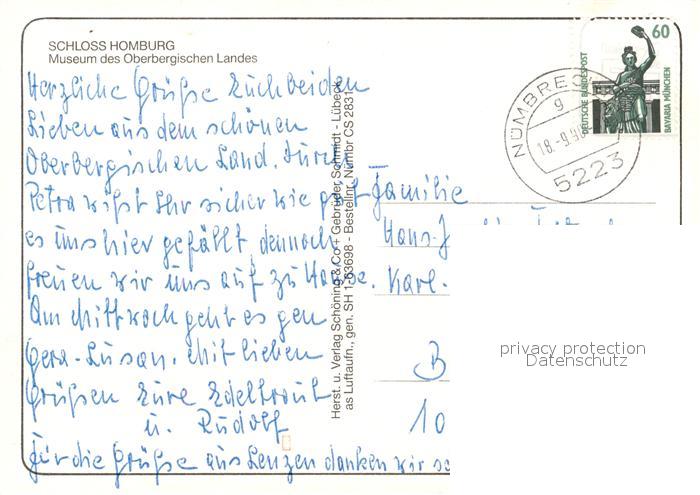 SCHLOSS HOMBURG
Museum des Oberbergischen Landes
Herzliche Grüße Euch beiden
Lieben aus dem schönen
Oberbergischen Land. Durch
Petra wißt Ihr sicher wie gut
es uns hier gefällt, dennoch
freuen wir uns auf zu Hause.
Am Mittwoch geht es gen
Gera-Lusan. Mit lieben
Grüßen Eure Edeltraut
u. Rudolf
Für die Grüße aus Lenzen danken wir
Herst. u. Verlag Schöning & Co + Gebrüder Schmidt - Lübeck
as Luftaufn., gen. SH 1-53698 - Bestellnr. Nümbr CS 2831
60
DEUTSCHE BUNDESPOST
BAYARIA MÜNCHEN
NÜMBRECH
g
18.-9.90
5223
Familie
Hans-J
Karl-
B
10
privacy protection
Datenschutz